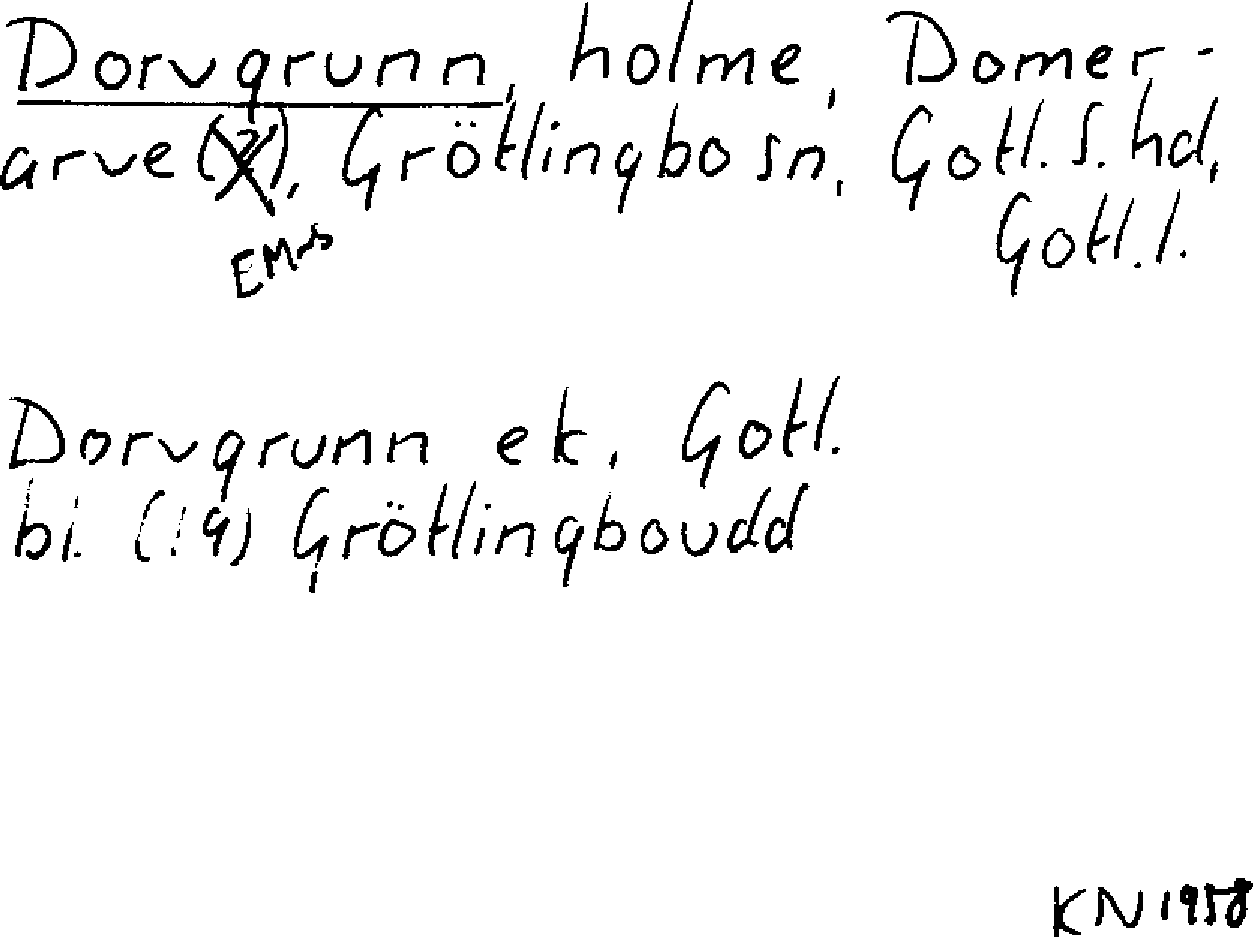 Dorvgrunn, holme, Domer-
arve (?), Grötlingbo sn, Gotl. S. hd,
Gotl. l.
Dorvgrunn ek. Gotl.
bl. (!9) Grötlingboudd
KN 1958